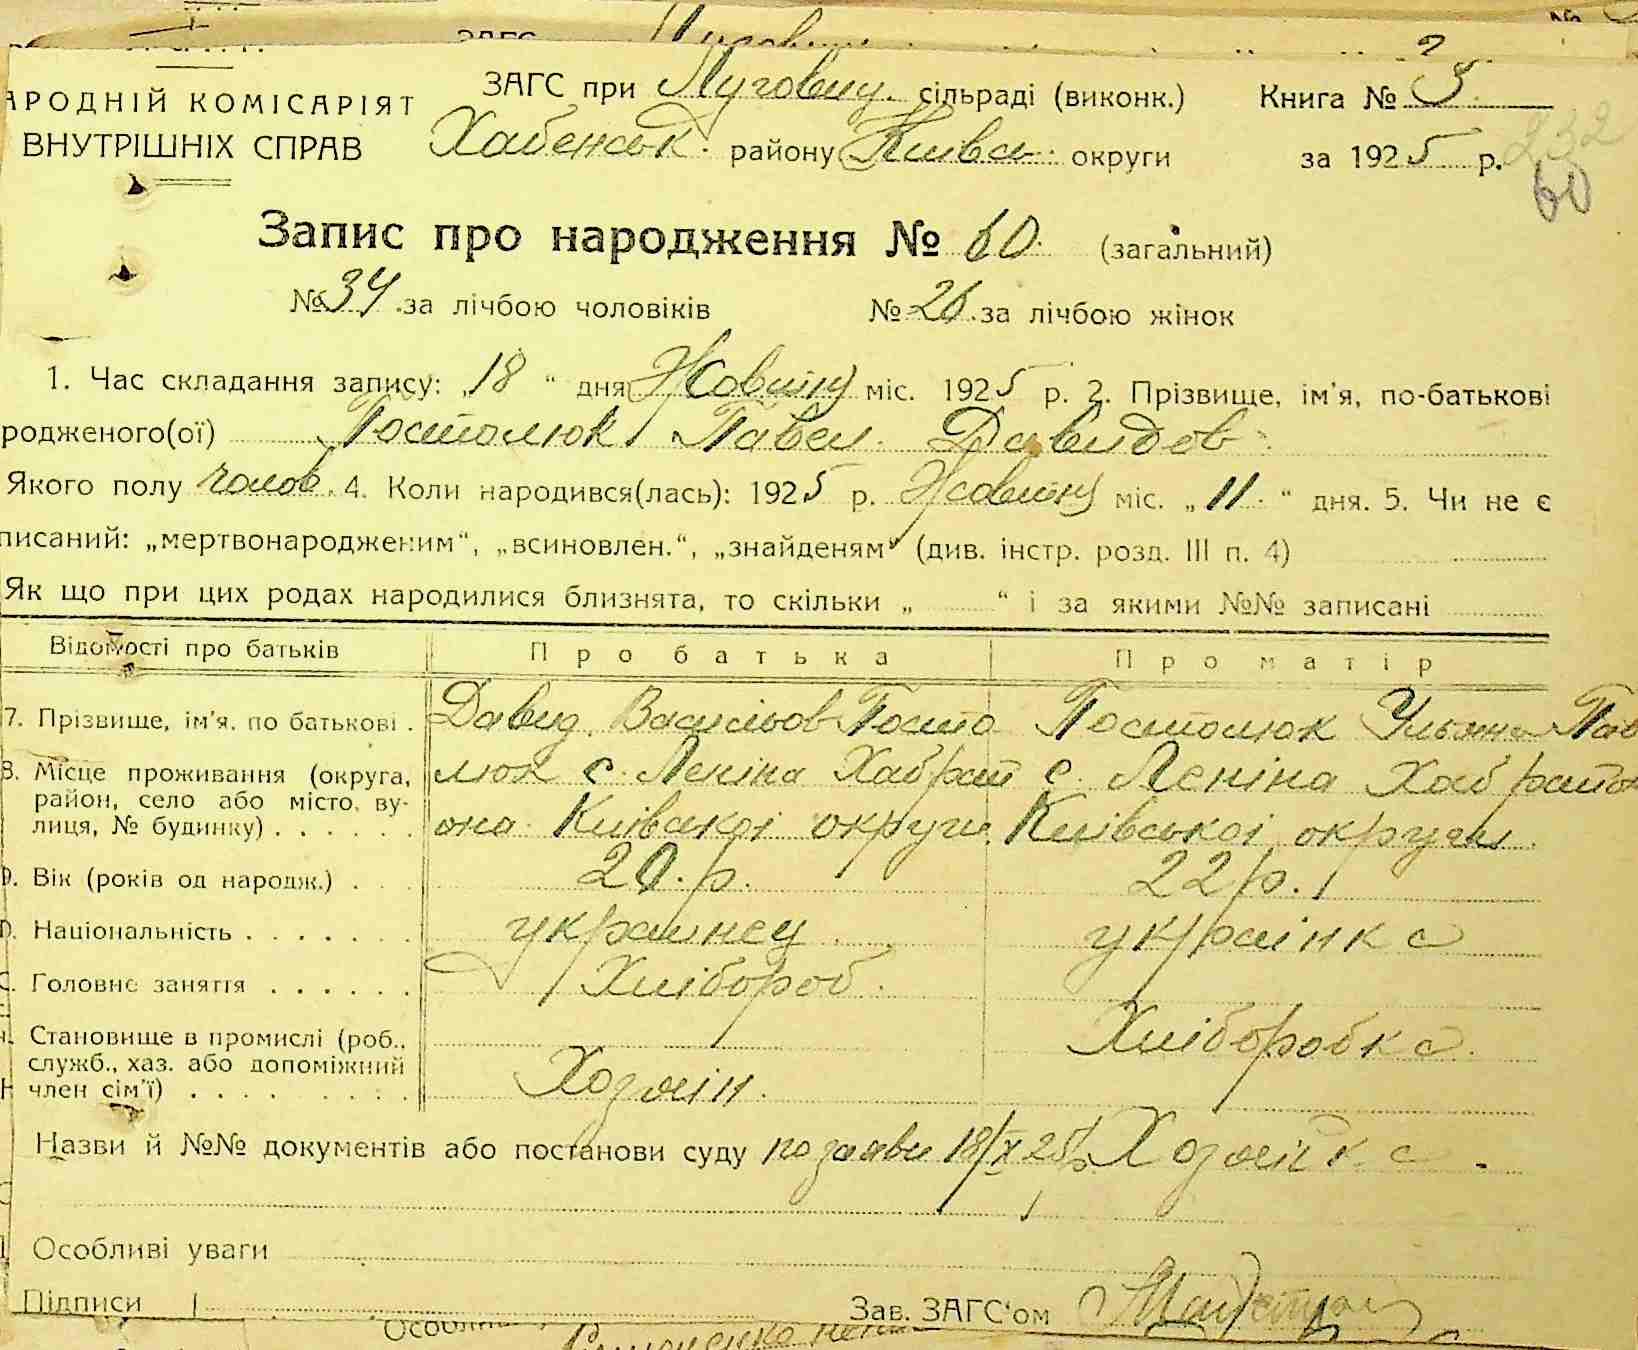 ЗАГС при Луговиц. сільраді (виконк.) Книга № 3
АРОДНІЙ КОМІСАРІЯТ
ВНУТРІШНІХ СПРАВ Хабенськ. району Київск. округи за 1925 р.
232
60
Запис про народження № 60. (загальний)
№ 34. за лічбою чоловіків № 26. за лічбою жінок
1. Час складання запису: „18“ дня Жовтня міс. 1925 р. 2. Прізвище, ім'я, по-батькові
родженого(ої) Постолюк Павел. Давидов
Якого полу чолов. 4. Коли народився(лась): 1925 р. Жовтня міс. „11.“ дня. 5. Чи не є
писаний: „мертвонародженим“, „всиновлен.“, „знайденям“ (див. інстр. розд. III п. 4)
Як що при цих родах народилися близнята, то скільки „ “ і за якими №№ записані
Відомості про батьків Про батька Про матір
7. Прізвище, ім'я, по батькові. Давид. Васильов Посто Постолюк Ульяна Пав
8. Місце проживання (округа, люк с. Леніна Хабрай с. Леніна Хаб район
район, село або місто, ву-
лиця, № будинку) . . . . . . она Київської округи. Київської округи.
Вік (років од народж.) . . . 20. р. 22 р.
Національність . . . . . . . украинец украінка
Головне заняття . . . . . . Хлібороб. Хліборобка.
Становище в промислі (роб.,
служб., хаз. або допоміжний
член сім'ї) . . . . . . . . Хозяін. Хозяйка.
Назви й №№ документів або постанови суду по заяви 18/X 25 р.
Особливі уваги
Підписи Зав. ЗАГС'ом